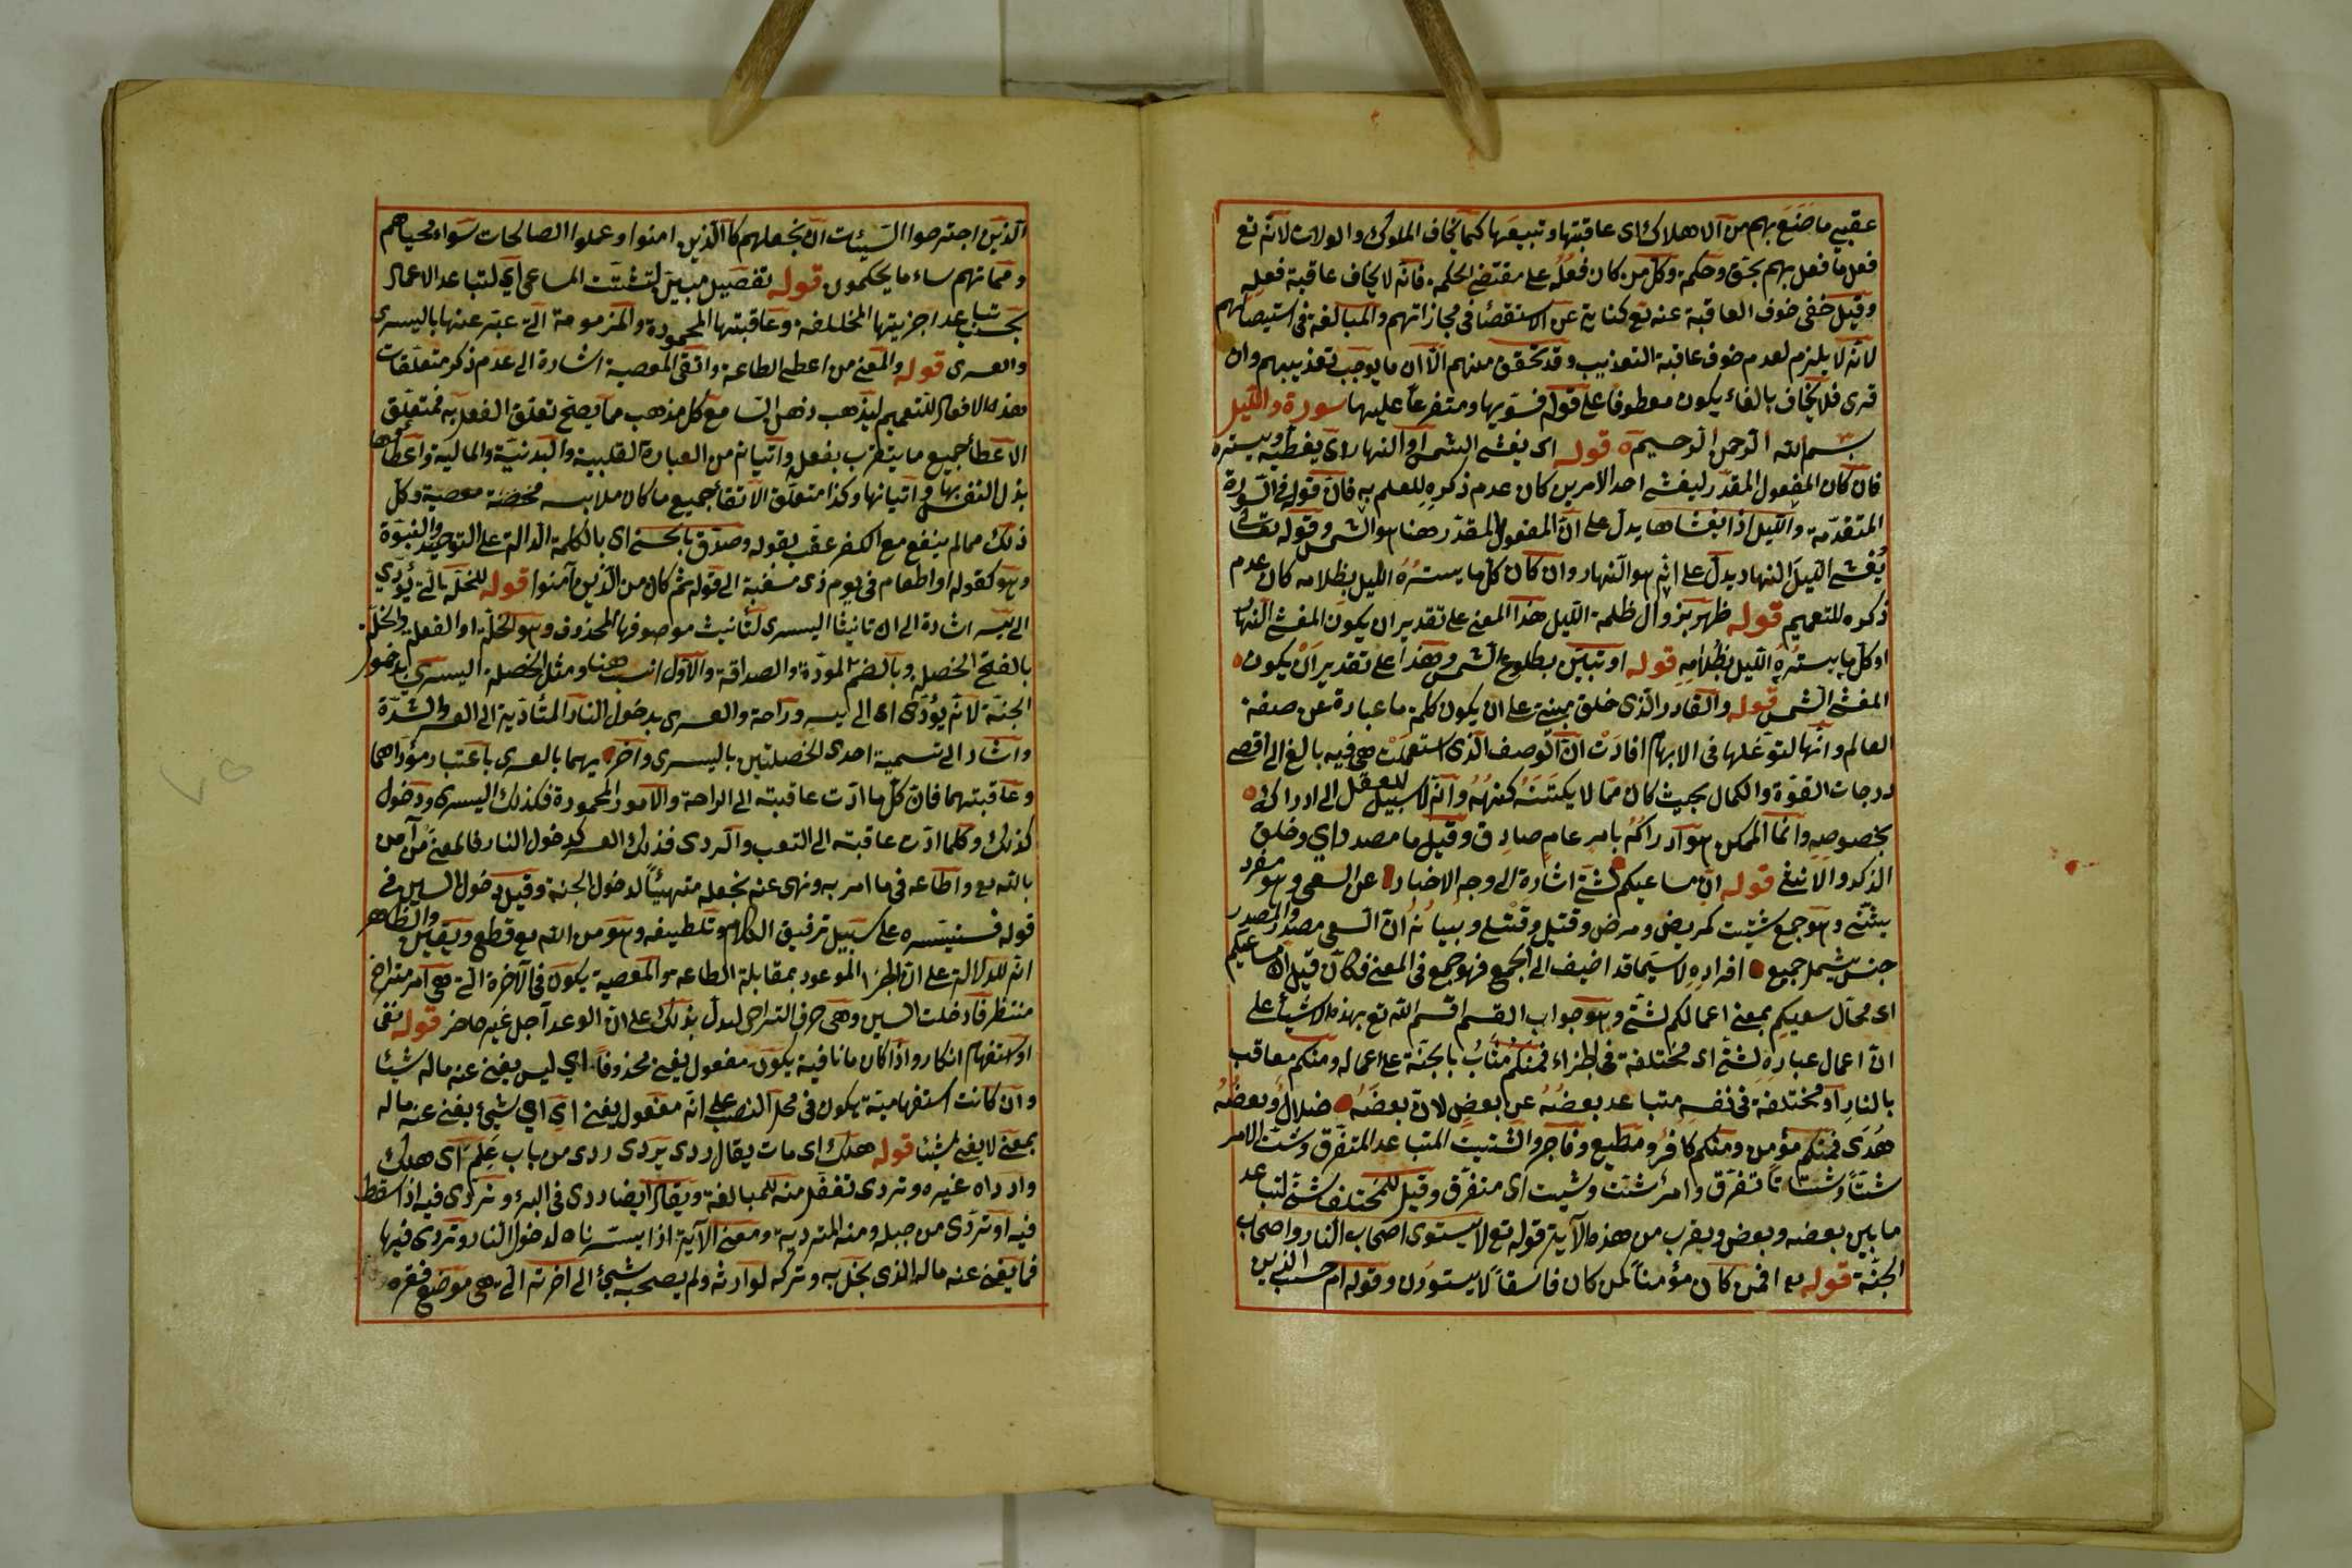 عقبى ما صَنَعَ بهم من الاهلاك اى عاقبتها وتبعَتها كما يخاف الملوك والولات لانّه تع
فعل ما فعل بهم بحق وحكمة وكلّ من كان فعلُه على مقتضى الحكمة فانّه لا يخاف عاقبة فعله
وقيل خفى خوف العاقبة عنه تع كناية عن الاستقصاء فى مجازاتهم والمبالغة فى استيصالهم
لانّه لا يلزم لعدم خوف عاقبة التعذيب وقد تحقق منهم الّا ان ما يوجب تعذيبهم وان
قرى فلا يخاف بالفاء يكون معطوفا على قوله فسوّيها ومتفرعاً عليها سورة والليل
بسم الله الرحمن الرحيم قوله اى يغشى الشمس او النهار اى يغطيه ويستره
فان كان المفعول المقدّر ليغشى احد الامرين كان عدم ذكره للعلم به فانّ قوله فى السورة
المتقدّمة والليل اذا يغشاها يدل على انّ المفعول المقدّر هنا هو الشمس وقوله تعالى
يُغشى الليلَ النهار يدلّ على انّه هو النهار وان كان كلّ ما يسترُهُ الليل بظلامه كان عدم
ذكره للتعميم قوله ظهر بزوال ظلمة الليل هذا المعنى على تقدير ان يكون المغشى النهار
او كلّ ما يسترُهُ الليل بظُلامِهِ قوله او تبيّن بطلوع الشمس وهذا على تقدير اَنْ يكون
المغشى الشمس قوله والقادر الذى خلق مبنى على ان يكون كلمة ما عبارة عن صفة
العالم وانّها لتوغّلها فى الابهام افادَتْ انّ الوصف الذى استعملَتْ هى فيه بالغ الى اقصى
درجات القوّة والكمال بحيث كان ممّا لا يكتَنَهُ كنهُهُ وانّه لا سبيل للعقل الى ادراكه
بخصوصه وانّما الممكن هو ادراكُه بامر عام صادق وقيل ما مصدراي وخلق
الذكر والانثى قوله انّ مساعيكم لشتى اشارة الى وجه الاخبار عن السعى وهو مفرد
بشتّى وهو جمع شتيت كمريض ومرضى وقتيل وقتلى وبيانُهُ انّ السعى مصدر والمصدر
جنس يشمل جميع افراده لا سيّما قد اضيف الى الجمع فهو جمع فى المعنى فكانّ قيل انّ مساعيكم
اى محال سعيكم بمعنى اعمالكم لشتى وهو جواب القسم اقسم الله تع بهذه الاشياء على
انّ اعمال عباده لشتّى اى مختلفة فى الجزاء فمنكم مثابُ بالجنّة على اعماله ومنكم معاقب
بالنار او مختلفة فى نفسه متباعد بعضُهُ عن بعضٍ لانّ بعضَهُ ضلالُ وبعضُهُ
هُدَى فمنكم مؤمن ومنكم كافرُ ومطيع وفاجر والشتيت المتباعد المتفرق وشتّ الامر
شتّاً وشتاتاً تفرّق وامرُ شتّت وشتيت اى متفرّق وقيل للمختلف شتى لتباعد
ما بين بعضه وبعض ويقرب من هذه الآية قوله تع لا يستوى اصحاب النار واصحاب
الجنّة قوله تع افمن كان مؤمناً كمن كان فاسقاً لا يستوون وقوله ام حسب الذين
الذين اجترحوا السيّئات ان نجعلهم كالذين امنوا وعملوا الصالحات سَواء محياهم
ومماتهم ساء ما يحكمون قوله تفصيل مبيّن لتشتّت المساعى اي لتباعد الاعمال
بحسب تباعد اجزيتها المختلفة وعاقبتها المحمودة والمذمومة التى عبّر عنها باليسرى
والعسرى قوله والمعنى من اعطى الطاعة واتقى المعصية اشارة الى عدم ذكر متعلّقات
هذه الافعال للتعميم ليذهب ذهن السامع كل مذهب مما يصلح تعلق الفعل به فمتعلّق
الاعطأ جميع ما يتقرّب بفعله واتيانه من العبادة القلبية والبدنيّة والمالية واعطاؤها
بذل النفس بها واتيانها وكذا متعلّق الاتقأ جميع ما كان ملابسه محضة معصية وكل
ذلك مما لم ينفع مع الكفر عقب بقوله وصدّق بالحسنى اى بالكلمة الدالة على التوحيد والنبوّة
وهو كقوله او اطعام فى يوم ذى مسغبة الى قوله ثم كان من الذين آمنوا قوله للخلّة التى يؤدّي
الى يسر اشارة الى ان تانيث اليسرى لتأنيث موصوفها المحذوف وهو الخلّة او الفعلة والخلّة
بالفتح الخصلة وبالضم المودّة والصداقة والاول انسب هنا ومثل الخصلة اليسرى بدخول
الجنّة لانّه يؤدّى الى يسر وراحة والعسرى بدخول النار المتأدّية الى العسر والشدّة
واشار الى تسمية احدى الخصلتين باليسرى واخريهما بالعسرى باعتبار مؤدّاهما
وعاقبتهما فانّ كلّ ما ادّت عاقبته الى الراحة والامور المحمودة فكذلك اليسرى ودخول
كذلك وكلما ادّت عاقبته الى التعب والردى فذلك العسر كدخول النار فالمعنى من آمن
بالله تع واطاعه فى ما امر به ونهى عنه نجعله متهيئاً لدخول الجنة وقيل دخول السين فى
قوله فسنيسّره على سبيل ترقيق الكلام وتلطيفه وهو من الله تع قطع ويقين والظاهر
انّه للدلالة على انّ الجزاء الموعود بمقابلة الطاعة والمعصية يكون فى الآخرة التى هى امر متراخ
منتظر فأدخلت السين وهى حرف التراخى ليدلّ بذلك على انّ الوعد آجل غير حاضر قوله نفى
او استفهام انكار واذا كان ما نافية يكون مفعول يغنى محذوفاً اي ليس يغنى عنه ماله شيئا
وان كانت استفهاميّة يكون فى محل النصب على انّه مفعول يغنى اي اي شىءٍ يغنى عنه ماله
بمعنى لا يغنى شيئا قوله هلك اى مات يقال ردى يردى ردى من باب عَلِمَ اى هلك
وارداه غيره وتردى تفعّل منه للمبالغة ويقال ايضا ردى فى البئر وتردّى فيه اذا سقط
فيه او تردّى من جبل ومنه المتردية ومعنى الآية اذا يسّرناه لدخول النار وتردى فيها
فما يغنى عنه ماله الذى بخل به وتركه لوارثه ولم يصحبه شيئ الى اخرته التى هى موضع فقره